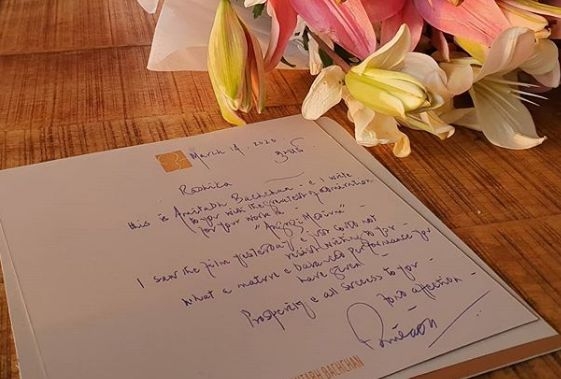 March 14. 2020
Radhika
this is Amitabh Bachchan - & I write
to you with the greatest of admiration
for your work in -
"Angrezi Medium"
I saw the film yesterday & just could not
resist writing to you -
What a mature & balanced performance you
have given -
Prosperity & all success to you -
fond affection -
AMITABH BACHCHAN